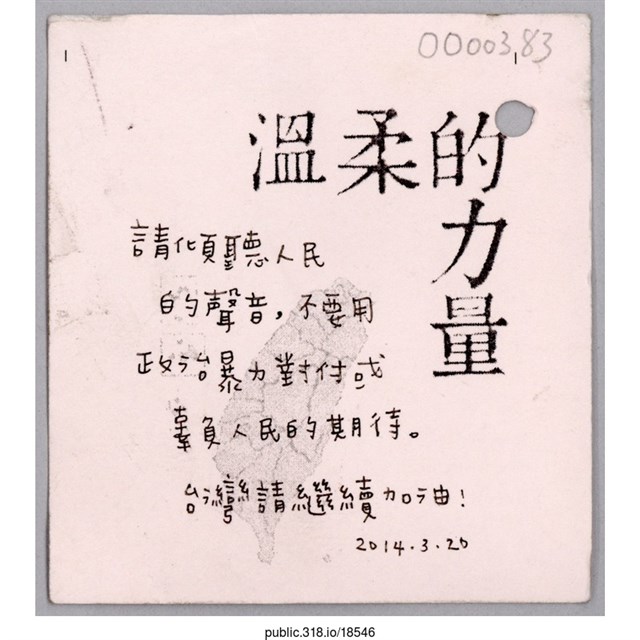 0000383
溫柔的
力
量
請傾聽人民
的聲音，不要用
政治暴力對付或
辜負人民的期待。
台灣請繼續加油！
2014.3.20
public.318.io/18546